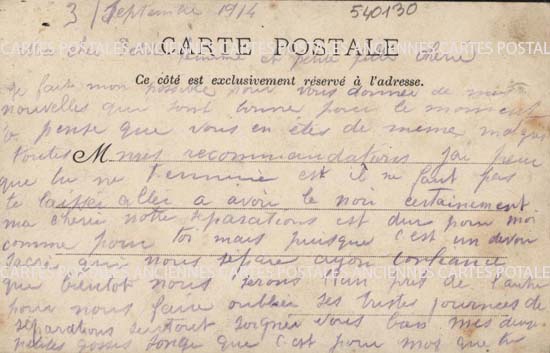 3 Septembre 1914
540130
CARTE POSTALE
femme et petite fille chérie
Ce côté est exclusivement réservé à l'adresse.
Je fait mon possible pour vous donner de mes
nouvelles que sont bonne pour le moment
pense que vous en êtes de meme malgré
toutes M mes recommandations j'ai peur
que tu ne est il ne faut pas
te laisser aller a avoir le noir certainement
ma cherie notre separations est dur pour moi
comme pour toi mais puisque c'est un devoir
sacré qui nous separe ayon confiance
que bientot nous serons l'un pres de l'autre
pour nous faire oublier ses tristes journees de
séparations surtout soigner vous bien mes deux
petites gosses songe que c'est pour moi que tu